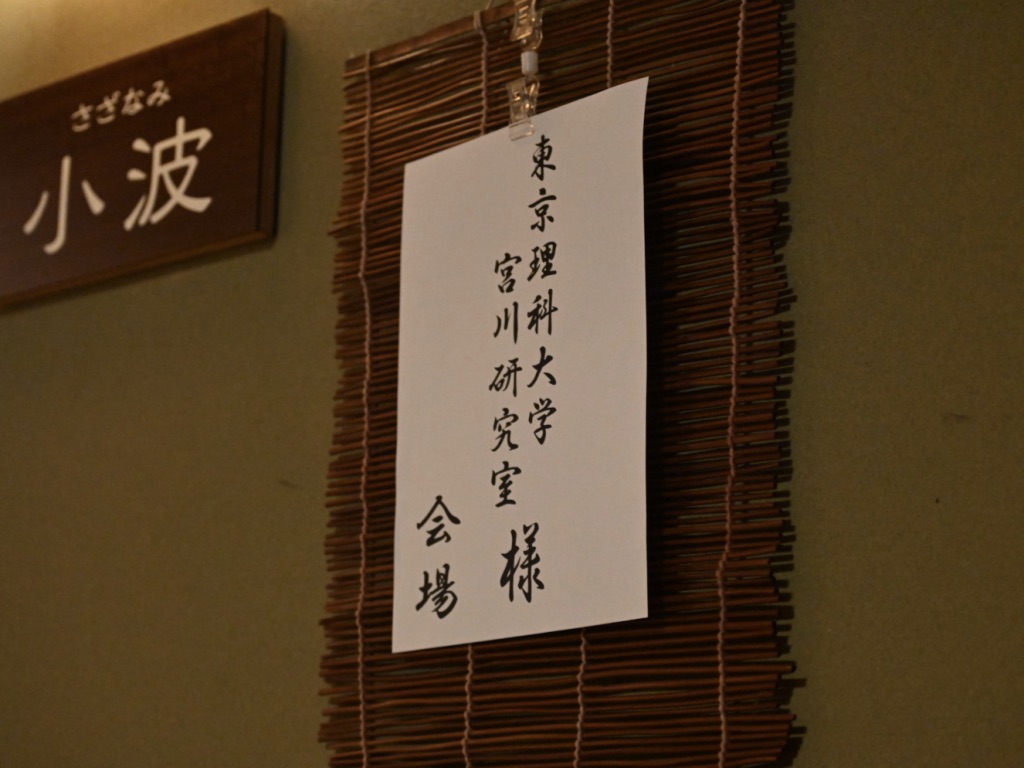 さざなみ
小波
東京理科大学
宮川研究室
様
会場